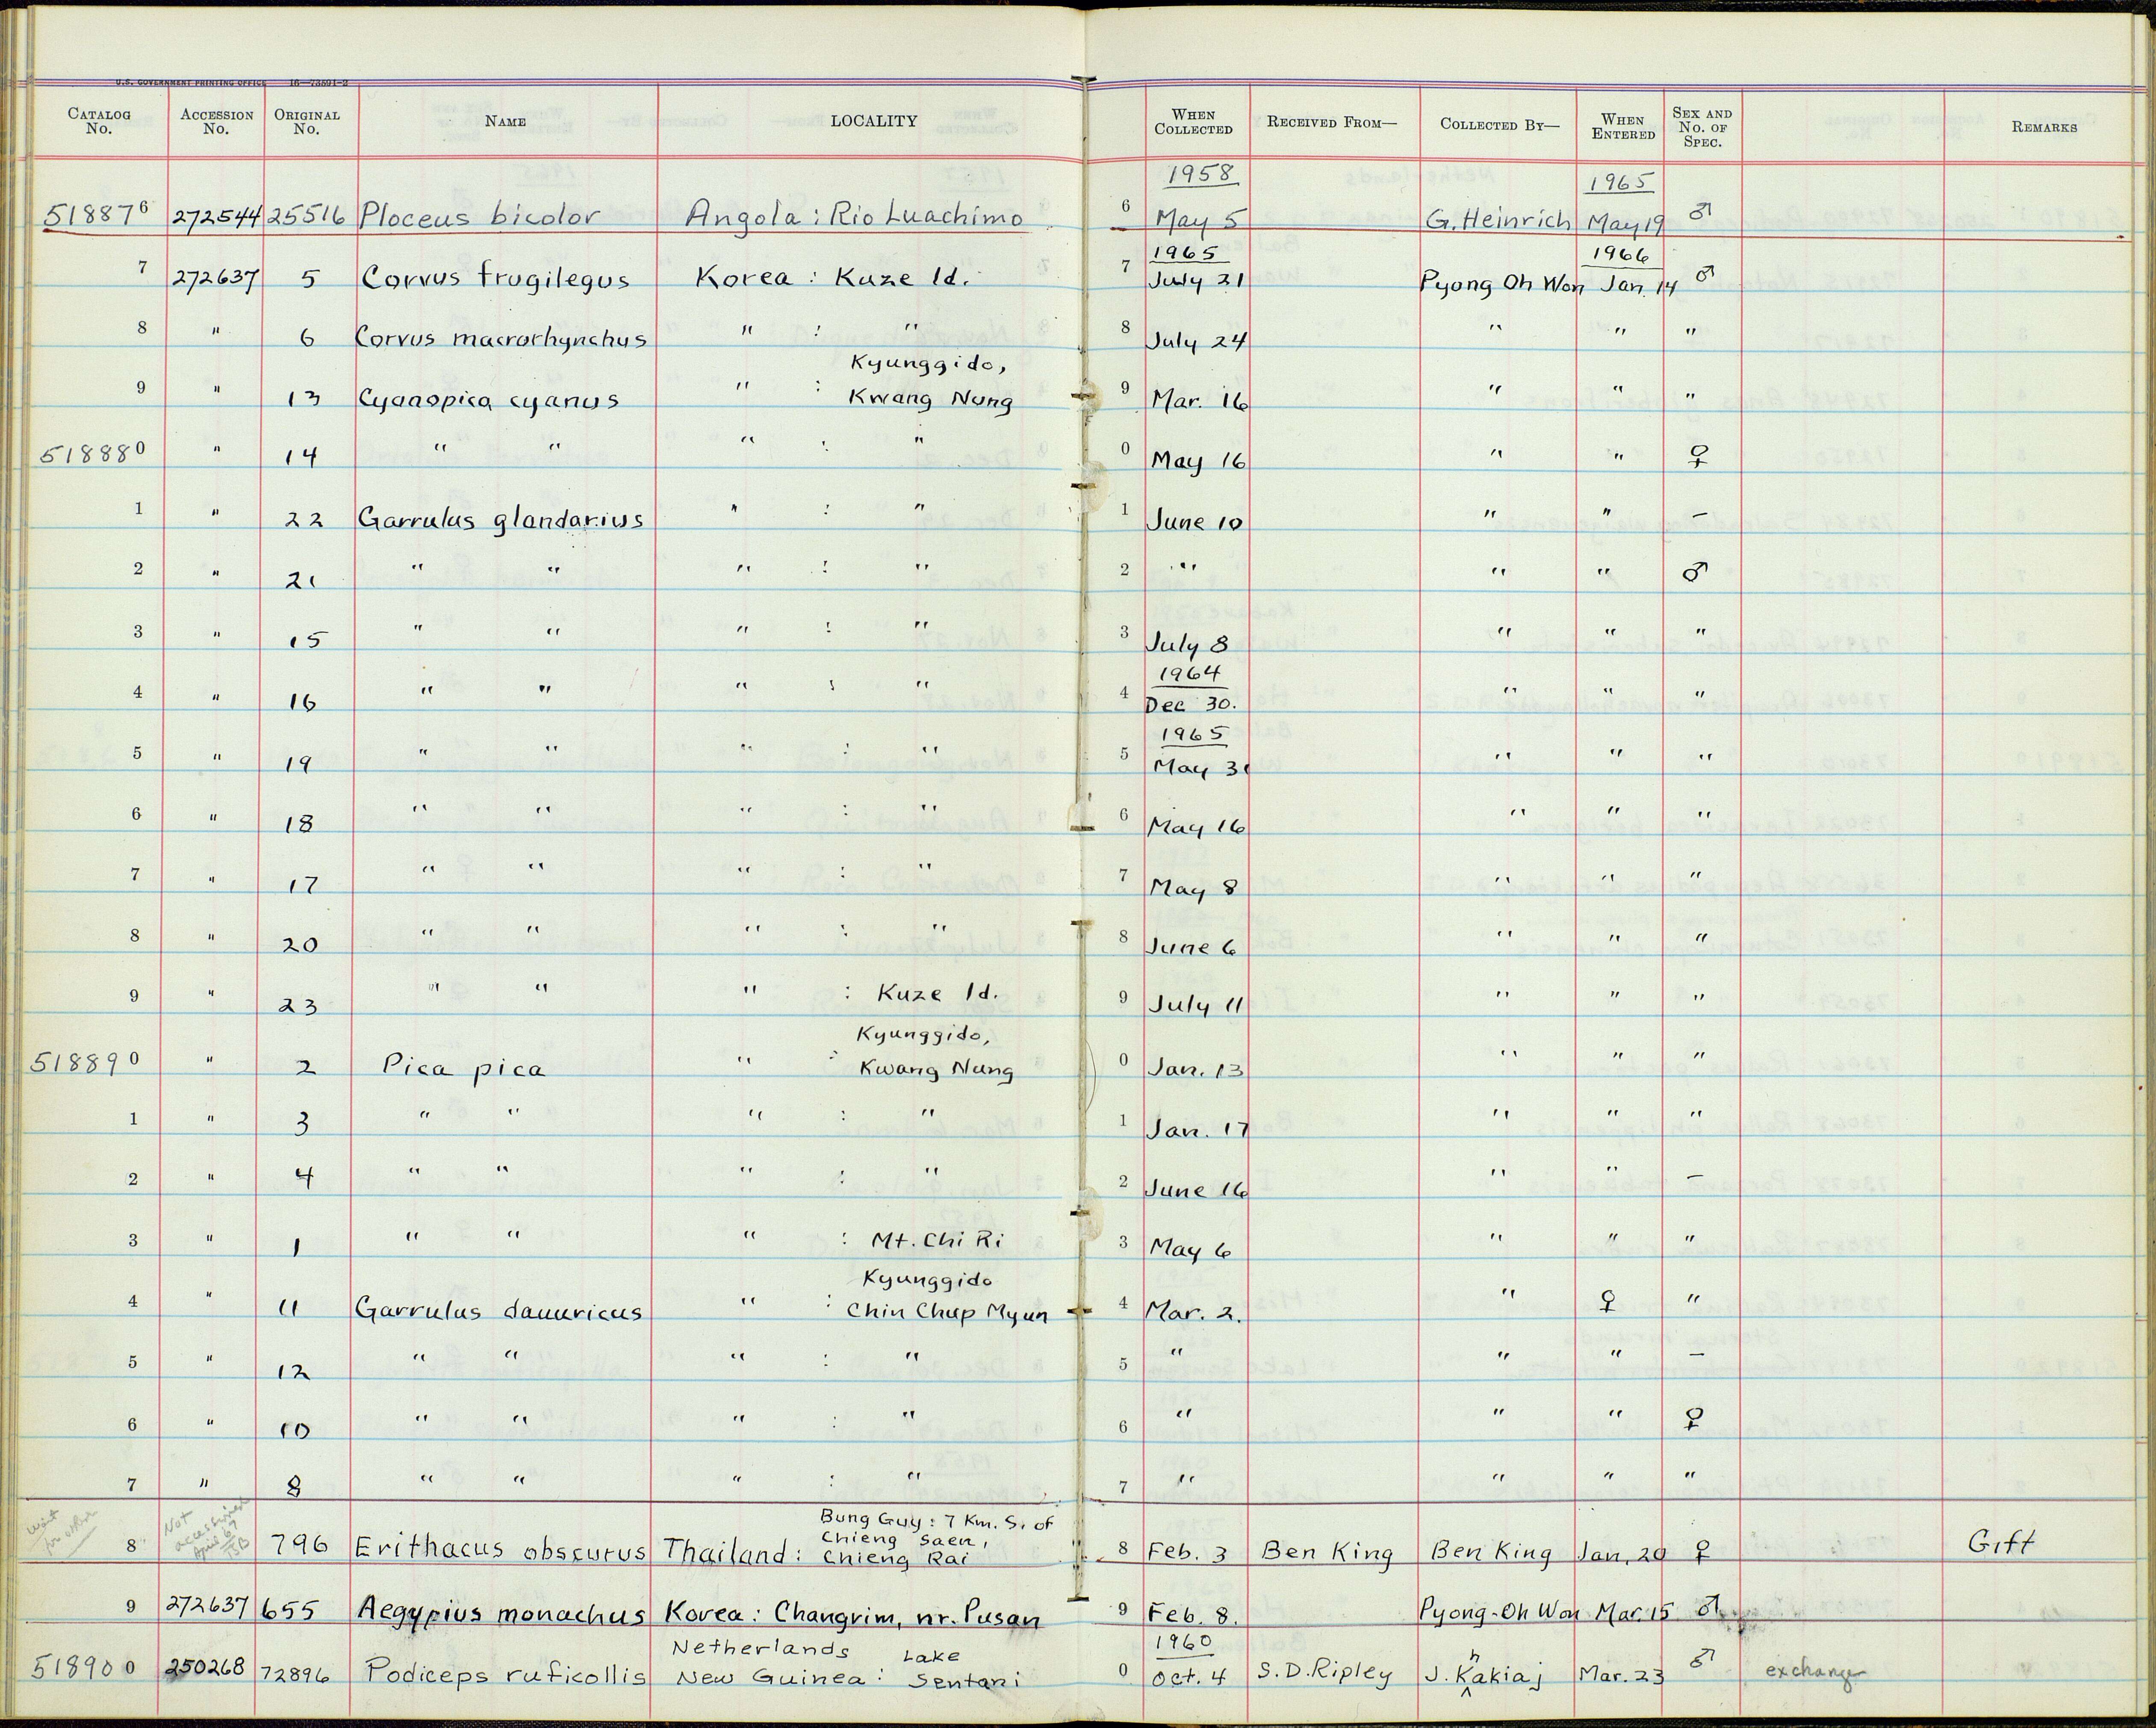 U.S. GOVERNMENT PRINTING OFFICE 16—73591-2
CATALOG No. ACCESSION No. ORIGINAL No. NAME LOCALITY WHEN COLLECTED RECEIVED FROM— COLLECTED BY— WHEN ENTERED SEX AND No. OF SPEC. REMARKS
1958 1965
518876 272544 25516 Ploceus bicolor Angola : Rio Luachimo 6 May 5 G. Heinrich May 19 ♂
1965 1966
7 272637 5 Corvus frugilegus Korea : Kuze Id. 7 July 21 Pyong Oh Won Jan. 14 ♂
8 " 6 Corvus macrorhynchus " : " 8 July 24 " " "
Kyunggido,
9 " 13 Cyanopica cyanus " : Kwang Nung 9 Mar. 16 " " "
518880 " 14 " " " : " 0 May 16 " " ♀
1 " 22 Garrulus glandarius " : " 1 June 10 " " –
2 " 21 " " " : " 2 " " " ♂
3 " 15 " " " : " 3 July 8 " " "
1964
4 " 16 " " " : " 4 Dec 30. " " "
1965
5 " 19 " " " : " 5 May 31 " " "
6 " 18 " " " : " 6 May 16 " " "
7 " 17 " " " : " 7 May 8 " " "
8 " 20 " " " : " 8 June 6 " " "
9 " 23 " " " : Kuze Id. 9 July 11 " " "
Kyunggido,
518890 " 2 Pica pica " : Kwang Nung 0 Jan. 13 " " "
1 " 3 " " " : " 1 Jan. 17 " " "
2 " 4 " " " : " 2 June 16 " " –
3 " 1 " " " : Mt. Chi Ri 3 May 6 " " "
Kyunggido
4 " 11 Garrulus dauuricus " : Chin Chup Myun 4 Mar. 2. " ♀ "
5 " 12 " " " : " 5 " " " –
6 " 10 " " " : " 6 " " " ♀
7 " 8 " " " : " 7 " " " "
Not accessioned April 67
Bung Guy : 7 Km. S. of
Chieng Saen,
8 796 Erithacus obscurus Thailand : Chieng Rai 8 Feb. 3 Ben King Ben King Jan. 20 ♀ Gift
9 272637 655 Aegypius monachus Korea : Changrim, nr. Pusan 9 Feb. 8. Pyong-Oh Won Mar. 15 ♂
Netherlands Lake 1960
518900 250268 72896 Podiceps ruficollis New Guinea : Sentani 0 Oct. 4 S.D. Ripley J. Khakiaj Mar. 23 ♂ exchange